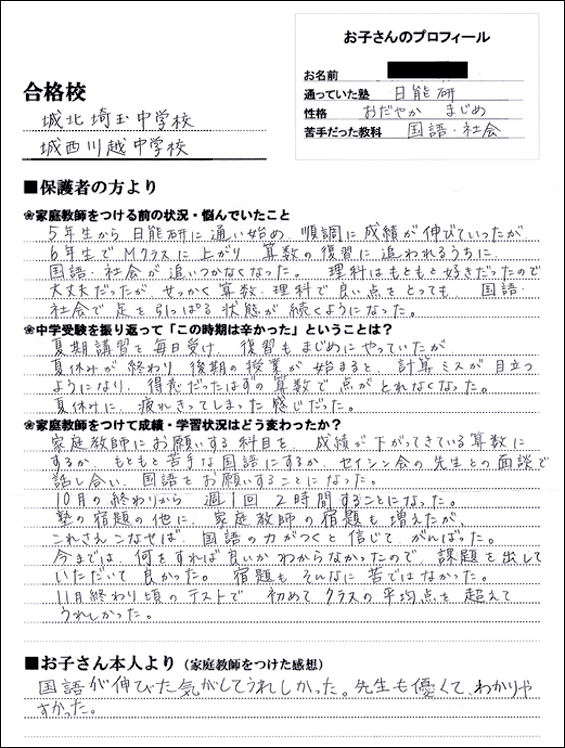 お子さんのプロフィール
お名前
通っていた塾 日能研
性格 おだやか まじめ
苦手だった教科 国語・社会
合格校
城北埼玉中学校
城西川越中学校
■保護者の方より
❀家庭教師をつける前の状況・悩んでいたこと
5年生から日能研に通い始め、順調に成績が伸びていったが
6年生でMクラスに上がり 算数の復習に追われるうちに、
国語・社会が追いつかなくなった。 理科はもともと好きだったので
大丈夫だったが、せっかく算数・理科で良い点をとっても、国語・
社会で足を引っぱる状態が続くようになった。
❀中学受験を振り返って「この時期は辛かった」ということは?
夏期講習を毎日受け、復習もまじめにやっていたが
夏休みが終わり 後期の授業が始まると、計算ミスが目立つ
ようになり、得意だったはずの算数で点がとれなくなった。
夏休みに、疲れきってしまった感じだった。
❀家庭教師をつけて成績・学習状況はどう変わったか?
家庭教師にお願いする科目を、成績が下がってきている算数に
するか、もともと苦手な国語にするか、セイシン会の先生との面談で
話し合い、国語をお願いすることになった。
10月の終わりから 週1回 2時間することになった。
塾の宿題の他に、家庭教師の宿題も増えたが、
これさえこなせば、国語の力がつくと信じて がんばった。
今までは、何をすれば良いかわからなかったので、課題を出して
いただいて良かった。 宿題もそんなに苦ではなかった。
11月終わり頃のテストで 初めてクラスの平均点を超えて
うれしかった。
■お子さん本人より（家庭教師をつけた感想）
国語が伸びた気がしてうれしかった。先生も優くて、わかりや
すかった。